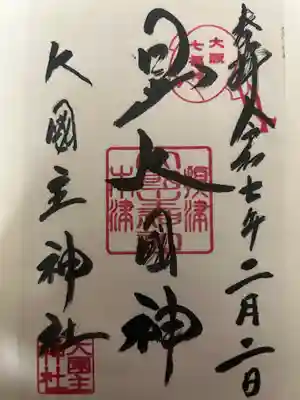 奉拝 令和七年二月二日
大阪
七福
日出大國神
木津
大國主神社
大國主
神社